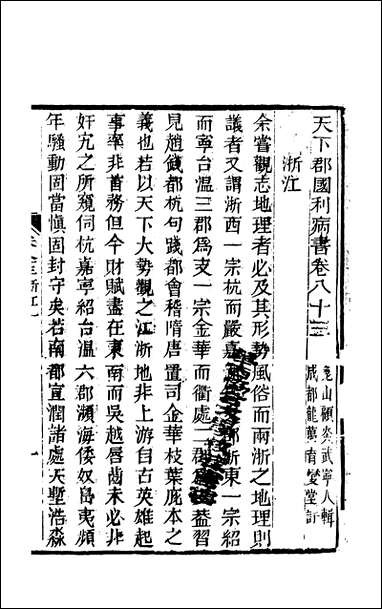 天下郡國利病書卷八十三
崑山顧炎武寧人輯
成都龍萬育燮堂訂
浙江
余嘗觀志地理者必及其形勢風俗而兩浙之地理則
議者又謂浙西一宗杭而嚴嘉郡浙東一宗紹
而寧台溫三郡爲支一宗金華而衢處二郡爲益習
見趙錢都杭句踐都會稽隋唐置司金華枝葉庞本之
義也若以天下大勢觀之江浙地非上游自古英雄起
事率非首務但今財賦盡在東南而吳越唇齒未必非
奸宄之所窺伺杭嘉寧紹台溫六郡瀕海倭奴島夷頻
年騷動固當愼固封守矣若南郡宣潤諸處天塹浩淼